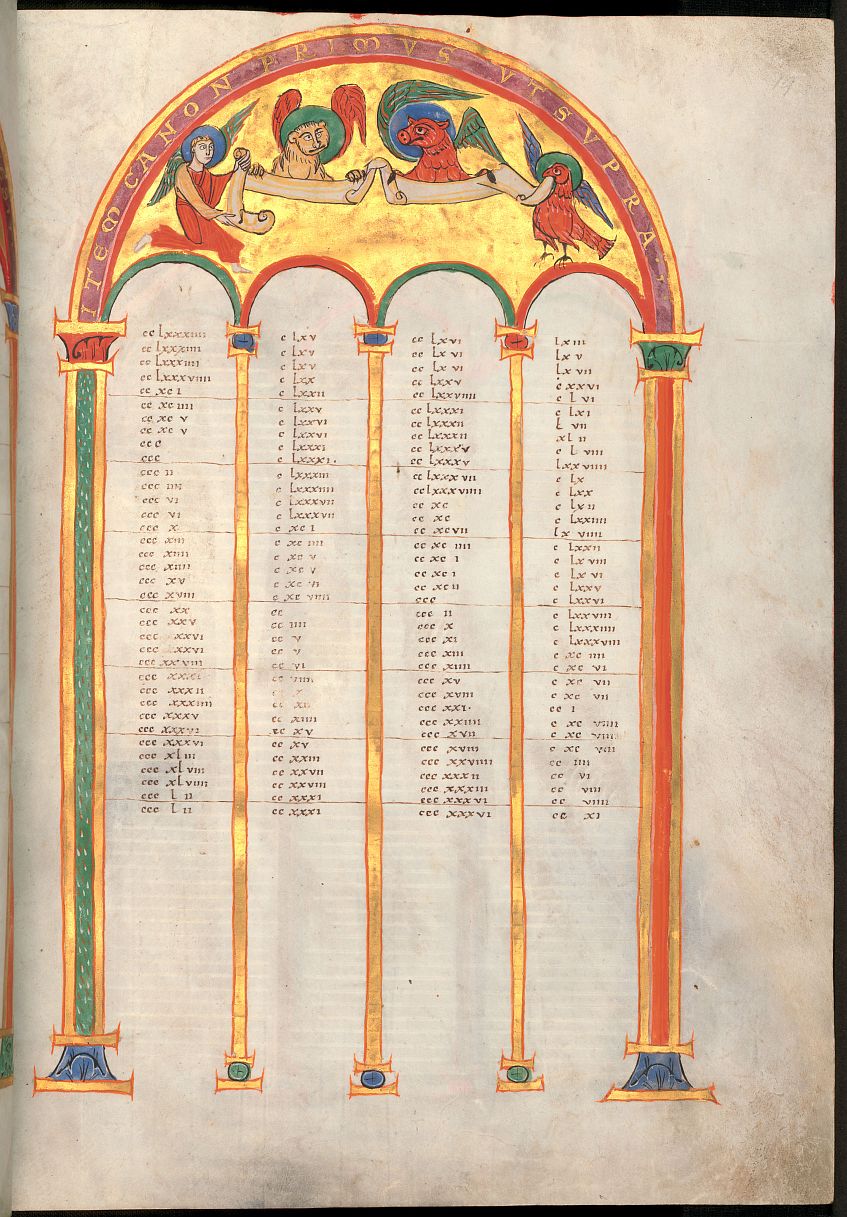 ITEM CANON PRIMVS VT SVPRA
cc Lxxxiiii
cc Lxxxiiii
cc Lxxxiiii
cc Lxxxviiii
cc xc i
cc xc iiii
cc xc v
cc xc v
ccc
ccc
ccc ii
ccc iiii
ccc vi
ccc vi
ccc x
ccc xiii
ccc xiiii
ccc xiiii
ccc xv
ccc xviii
ccc xx
ccc xxv
ccc xxvi
ccc xxvi
ccc xxviii
ccc xxxi
ccc xxxii
ccc xxxiiii
ccc xxxv
ccc xxxvi
ccc xxxvi
ccc xL iii
ccc xL viii
ccc xL viiii
ccc L ii
ccc L ii
c Lxv
c Lxv
c Lxv
c Lxx
c Lxxii
c Lxxv
c Lxxvi
c Lxxvi
c Lxxxi
c Lxxxi.
c Lxxxiii
c Lxxxiiii
c Lxxxvii
c Lxxxvii
c xc i
c xc iiii
c xc v
c xc v
c xc vi
c xc viiii
cc
cc iiii
cc v
cc v
cc vi
cc viiii
cc x
cc xii
cc xiiii
cc xv
cc xv
cc xxiii
cc xxvii
cc xxviii
cc xxxi
cc xxxi
cc Lxvi
cc Lxvi
cc Lxvi
cc Lxxv
cc Lxxviiii
cc Lxxxi
cc Lxxxii
cc Lxxxii
cc Lxxxv
cc Lxxxv
cc Lxxxvii
cc Lxxxviiii
cc xc
cc xc
cc xcvii
cc xc iiii
cc xc i
cc xc i
cc xc ii
ccc
ccc ii
ccc x
ccc xi
ccc xiii
ccc xiiii
ccc xv
ccc xviii
ccc xxi.
ccc xxiiii
ccc xvii
ccc xviii
ccc xxviiii
ccc xxxii
ccc xxxiii
ccc xxxvi
ccc xxxvi
Lxiii
Lxv
Lxvii
cxxvi
c L vi
c Lxi
L vii
xL ii
c L viii
Lxxviiii
c Lx
c Lxx
c Lxii
c Lxxiiii
Lx viiii
c Lxxii
c Lx viii
c Lx vi
c Lxxv
c Lxxvi
c Lxxviii
c Lxxxiiii
c Lxxxviii
c xc iiii
c xc vi
c xc vii
c xc vii
cc i
c xc viiii
c xc viii
c xc viii
cc iiii
cc vi
cc viii
cc viiii
cc xi